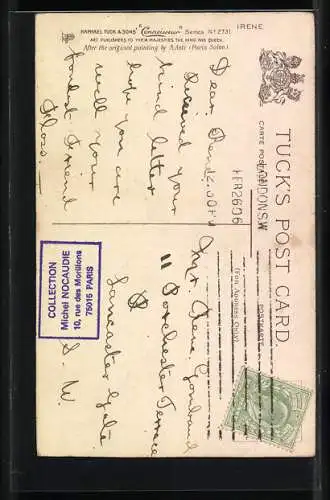 IRENE
RAPHAEL TUCK & SONS' "Connoisseur" Series No 2731
ART PUBLISHERS TO THEIR MAJESTIES THE KING AND QUEEN.
After the original painting by A. Asti (Paris Salon.)
TUCK'S POST CARD
CARTE POSTALE
POSTKARTE
(FOR ADDRESS ONLY)
LONDON S.W
FEB 26 06
Dear
Received your
kind letter
hope you are
well your
fondest Friend
Mr.
11 Porchester Terrace
Lancaster Gate
S. W.
COLLECTION
Michel NOCAUDIE
10, rue des Morillons
75015 PARIS